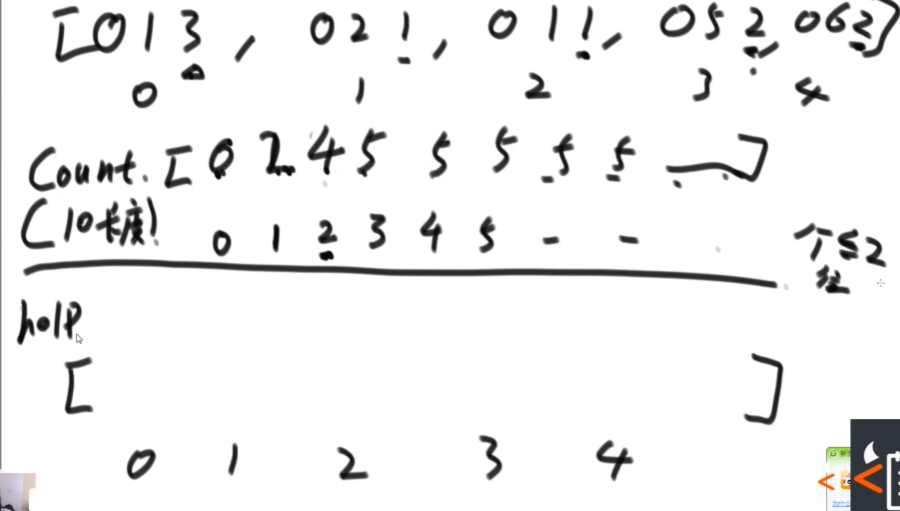 [013, 021, 011, 052, 062]
0 1 2 3 4
Count. [0 2 4 5 5 5 5 5 ]
(10长度) 0 1 2 3 4 5 - -
个位≤2
help
[ ]
0 1 2 3 4